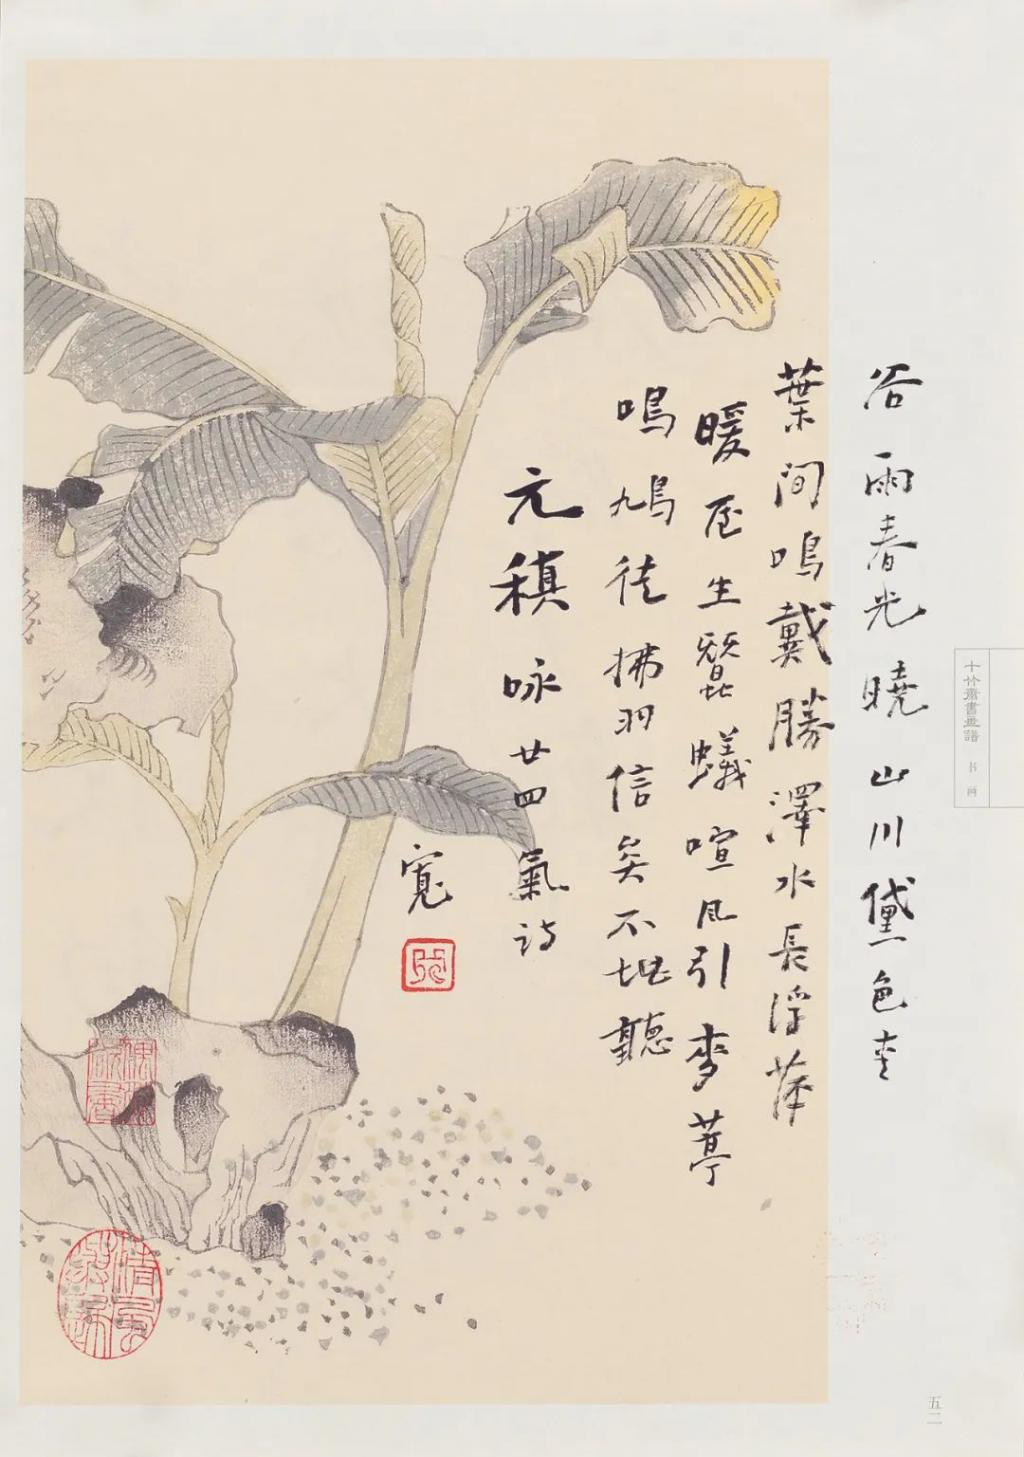 谷雨春光曉山川黛色青
葉間鳴戴勝澤水長浮萍
暖屋生蠶蟻喧風引麥葶
鳴鳩徒拂羽信矣不堪聽
元稹咏廿四氣诗
寬
十竹齋書畫譜 书画
五二